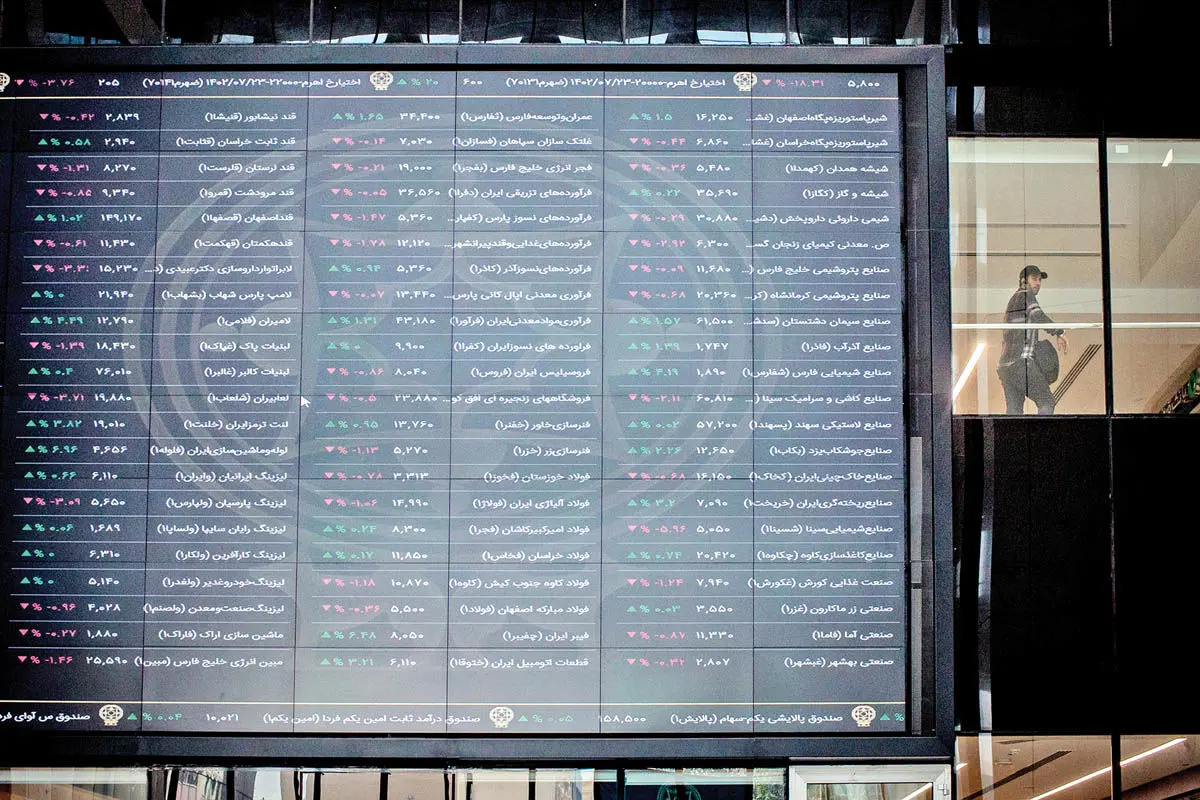 ۵,۸۰۰ ▼ % -۱۸.۳۱ اختیارخ اهرم-۲۰۰۰۰-۱۴۰۲/۰۷/۲۳ (ضهرم۷۰۱۳۱) ۶۰۰ ▲ % ۲۰ اختیارخ اهرم-۲۲۰۰۰-۱۴۰۲/۰۷/۲۳ (ضهرم۷۰۱۴۱) ۲۰۵ ▼ % -۳.۷۶
شیرپاستوریزه‌پگاه‌اصفهان (غش... ۱۶,۲۵۰ ▲ % ۱.۵ عمران‌وتوسعه‌فارس (ثفارس۱) ۳۴,۴۰۰ ▲ % ۱.۶۵ قند نیشابور (قنیشا۱) ۲,۸۳۹ ▼ % -۰.۴۲
شیرپاستوریزه‌پگاه‌خراسان (غشا... ۶,۸۶۰ ▼ % -۰.۴۴ غلتک سازان سپاهان (فسازان۱) ۷,۰۳۰ ▼ % -۰.۱۴ قند ثابت خراسان (قثابت۱) ۲,۹۴۰ ▲ % ۰.۵۸
شیشه همدان (کهمدا۱) ۵,۴۸۰ ▼ % -۰.۳۶ فجر انرژی خلیج فارس (بفجر۱) ۱۹,۰۰۰ ▼ % -۰.۲۱ قند لرستان (قلرست۱) ۸,۲۷۰ ▼ % -۱.۳۱
شیشه و گاز (کگاز۱) ۳۵,۶۹۰ ▲ % ۰.۲۲ فرآورده‌های تزریقی ایران (دفرا۱) ۳۶,۵۶۰ ▼ % -۰.۰۵ قند مرودشت (قمرو۱) ۹,۳۴۰ ▼ % -۰.۸۵
شیمی داروئی داروپخش (دشی... ۳۰,۸۸۰ ▼ % -۰.۲۹ فرآورده‌های نسوز پارس (کفپار... ۵,۳۶۰ ▼ % -۱.۴۷ قنداصفهان (قصفها۱) ۱۴۹,۱۷۰ ▲ % ۱.۰۲
ص. معدنی کیمیای زنجان گس... ۶,۳۰۰ ▼ % -۲.۹۲ فرآورده‌های‌غذایی‌وقندپیرانشهر... ۱۲,۱۲۰ ▼ % -۱.۷۸ قندهکمتان (قهکمت۱) ۱۱,۴۳۰ ▼ % -۰.۶۱
صنایع پتروشیمی خلیج فارس (... ۱۱,۶۸۰ ▼ % -۰.۰۹ فرآورده‌های‌نسوزآذر (کاذر۱) ۵,۳۶۰ ▲ % ۰.۹۴ لابراتوارداروسازی دکترعبیدی (د... ۱۵,۲۳۰ ▼ %
صنایع پتروشیمی کرمانشاه (کر... ۲۰,۳۶۰ ▼ % -۰.۶۸ فرآوری معدنی اپال کانی پارس... ۱۳,۴۴۰ ▼ % -۰.۰۷ لامپ پارس شهاب (بشهاب۱) ۲۱,۹۴۰ ▲ % ۰
صنایع سیمان دشتستان (سدش... ۶۱,۵۰۰ ▲ % ۱.۵۷ فرآوری‌موادمعدنی‌ایران (فرآور۱) ۴۳,۱۸۰ ▲ % ۱.۳۱ لامیران (فلامی۱) ۱۲,۷۹۰ ▲ % ۴.۴۹
صنایع آذرآب (فاذر۱) ۱,۷۴۷ ▲ % ۱.۳۹ فراورده های نسوزایران (کفرا۱) ۹,۹۰۰ ▲ % ۰ لبنیات پاک (غپاک۱) ۱۸,۴۳۰ ▼ % -۱.۳۹
صنایع شیمیایی فارس (شفارس۱) ۱,۸۹۰ ▲ % ۴.۱۹ فروسیلیس ایران (فروس۱) ۸,۰۴۰ ▼ % -۰.۸۶ لبنیات کالبر (غالبر۱) ۷۶,۰۱۰ ▲ % ۰.۴
صنایع کاشی و سرامیک سینا (... ۶۰,۸۱۰ ▼ % -۲.۱۱ فروشگاههای زنجیره ای افق کو... ۲۳,۸۸۰ ▼ % -۰.۵ لعابیران (شلعاب۱) ۱۹,۸۸۰ ▼ % -۳.۷۱
صنایع لاستیکی سهند (پسهند۱) ۵۷,۲۰۰ ▲ % ۰.۰۲ فنرسازی‌خاور (خفنر۱) ۱۳,۷۶۰ ▲ % ۰.۹۵ لنت ترمزایران (خلنت۱) ۱۹,۰۱۰ ▲ % ۳.۸۲
صنایع‌جوشکاب‌یزد (بکاب۱) ۱۲,۶۵۰ ▲ % ۲.۲۶ فنرسازی‌زر (خزر۱) ۵,۲۷۰ ▼ % -۱.۱۳ لوله‌وماشین‌سازی‌ایران (فلوله۱) ۴,۶۵۶ ▲ % ۶.۹۶
صنایع‌خاک‌چینی‌ایران (کخاک۱) ۱۶,۱۵۰ ▼ % -۰.۶۸ فولاد خوزستان (فخوز۱) ۳,۳۱۳ ▼ % -۰.۷۸ لیزینگ ایرانیان (وایران۱) ۶,۱۱۰ ▲ % ۰.۶۶
صنایع‌ریخته‌گری‌ایران (خریخت۱) ۷,۰۹۰ ▲ % ۳.۲ فولاد آلیاژی ایران (فولاژ۱) ۱۴,۹۹۰ ▼ % -۱.۰۶ لیزینگ پارسیان (ولپارس۱) ۵,۶۵۰ ▼ % -۳.۰۹
صنایع‌شیمیایی‌سینا (شسینا۱) ۵,۰۵۰ ▼ % -۵.۹۶ فولاد امیرکبیرکاشان (فجر۱) ۸,۳۰۰ ▲ % ۰.۲۴ لیزینگ رایان سایپا (ولساپا۱) ۱,۶۸۹ ▲ % ۰.۰۶
صنایع‌کاغذسازی‌کاوه (چکاوه۱) ۲۰,۴۲۰ ▲ % ۰.۷۴ فولاد خراسان (فخاس۱) ۱۱,۸۵۰ ▲ % ۰.۱۷ لیزینگ کارآفرین (ولکار۱) ۶,۳۱۰ ▲ % ۰
صنعت غذایی کورش (غکورش۱) ۷,۹۴۰ ▼ % -۱.۲۴ فولاد کاوه جنوب کیش (کاوه۱) ۱۰,۸۷۰ ▼ % -۱.۱۸ لیزینگ‌خودروغدیر (ولغدر۱) ۵,۱۴۰ ▲ % ۰
صنعتی زر ماکارون (غزر۱) ۳,۵۵۰ ▲ % ۰.۰۳ فولاد مبارکه اصفهان (فولاد۱) ۵,۵۰۰ ▼ % -۰.۳۶ لیزینگ‌صنعت‌ومعدن (ولصنم۱) ۴,۰۲۸ ▼ % -۰.۹۶
صنعتی آما (فاما۱) ۱۱,۳۳۰ ▼ % -۰.۸۷ فیبر ایران (چفیبر۱) ۸,۰۵۰ ▲ % ۶.۴۸ ماشین سازی اراک (فاراک۱) ۱,۸۸۰ ▼ % -۰.۲۷
صنعتی بهشهر (غبشهر۱) ۲,۸۰۷ ▼ % -۰.۳۲ قطعات اتومبیل ایران (ختوقا۱) ۶,۱۱۰ ▲ % ۳.۲۱ مبین انرژی خلیج فارس (مبین۱) ۲۵,۵۹۰ ▼ % -۱.۴۶
% ▲ صندوق پالایشی یکم-سهام (پالایش۱) ۱۵۸,۵۰۰ ▲ % ۰.۰۵ صندوق درآمد ثابت امین یکم فردا (امین یکم۱) ۱۰,۰۲۱ ▲ % ۰.۰۴ صندوق س آوای